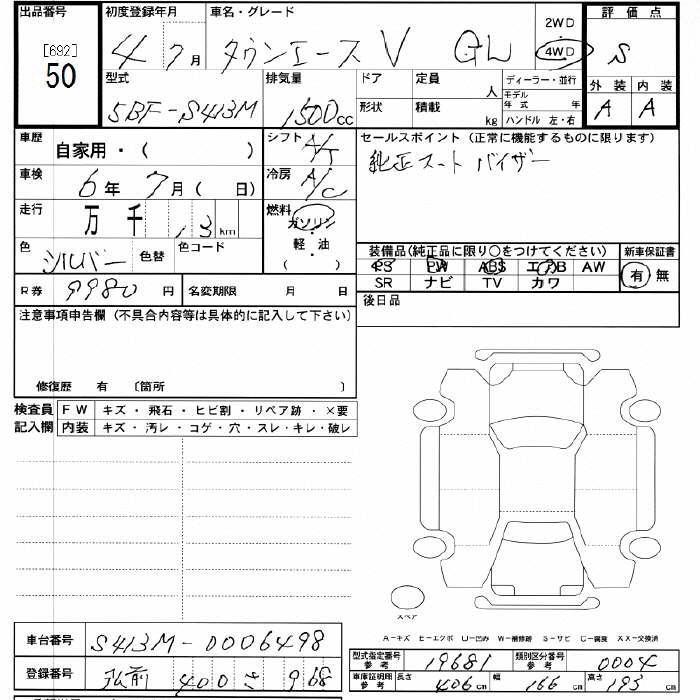 出品番号 初度登録年月 車名・グレード 評価点
[692] 50 4 7月 タウンエースV GL 2WD 4WD S
型式 排気量 ドア 定員 人 ディーラー・並行 外装 内装
5BF-S413M 1500cc 形状 積載 kg モデル年式 年 A A
ハンドル 左・右
車歴 自家用・( ) シフト A/T セールスポイント(正常に機能するものに限ります)
車検 6年 7月(日) 冷房 A/C 純正 バイザー
走行 万 千 13 km 燃料 ガソリン・
軽油・( )
色 シルバー 色替 色コード 装備品(純正品に限り○をつけてください) 新車保証書
PS PW ABS エアB AW 有 無
R券 9980円 名変期限 月 日 SR ナビ TV カワ
後日品
注意事項申告欄(不具合内容等は具体的に記入して下さい)
修復歴 有 〔箇所 〕
検査員 FW キズ・飛石・ヒビ割・リペア跡・×要
記入欄 内装 キズ・汚レ・コゲ・穴・スレ・キレ・破レ
スペア
A-キズ E-エクボ U-凹み W-補修跡 S-サビ C-腐食 XX-交換済
車台番号 S413M-0006498
型式指定番号 参考 19681 類別区分番号 参考 0004
登録番号 弘前 400 さ 968
車庫証明用 参考 長さ 406cm 幅 166cm 高さ 193cm